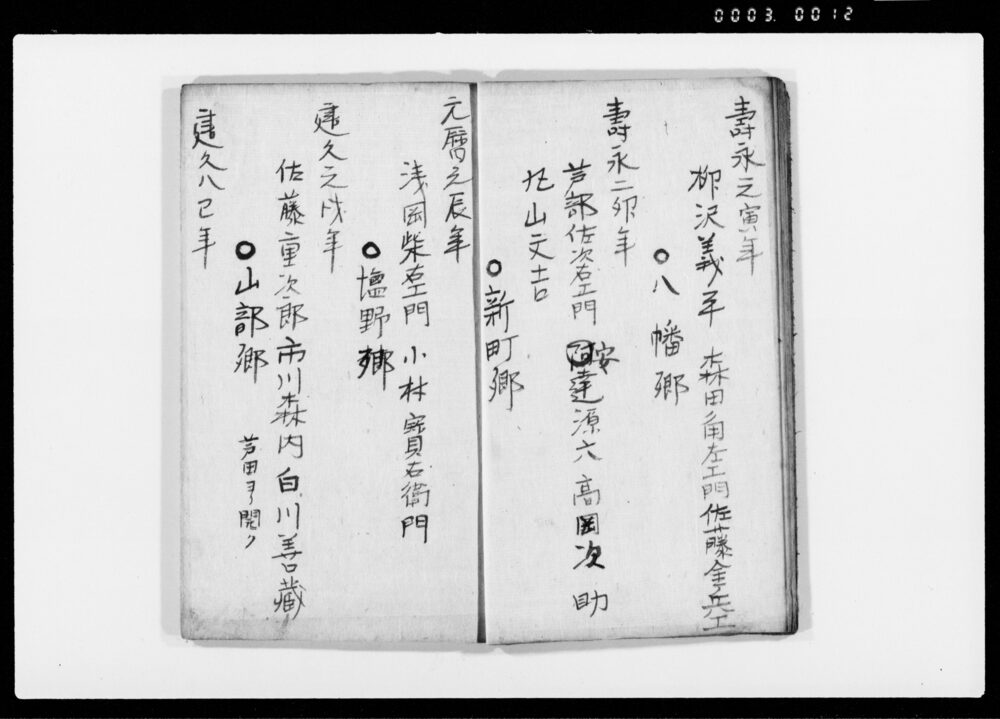 0003. 0012
壽永元寅年
柳沢義平 森田角左エ門 佐藤金兵エ
○八幡郷
壽永二卯年
芦部佐次右エ門 安達源六 高岡次助
丸山文吉
○新町郷
元暦元辰年
浅岡柴右エ門 小林寳右衛門
○塩野郷
建久元戌年
佐藤重次郎 市川森内 白川善藏
○山部郷 芦田ヨリ開ク
建久八巳年